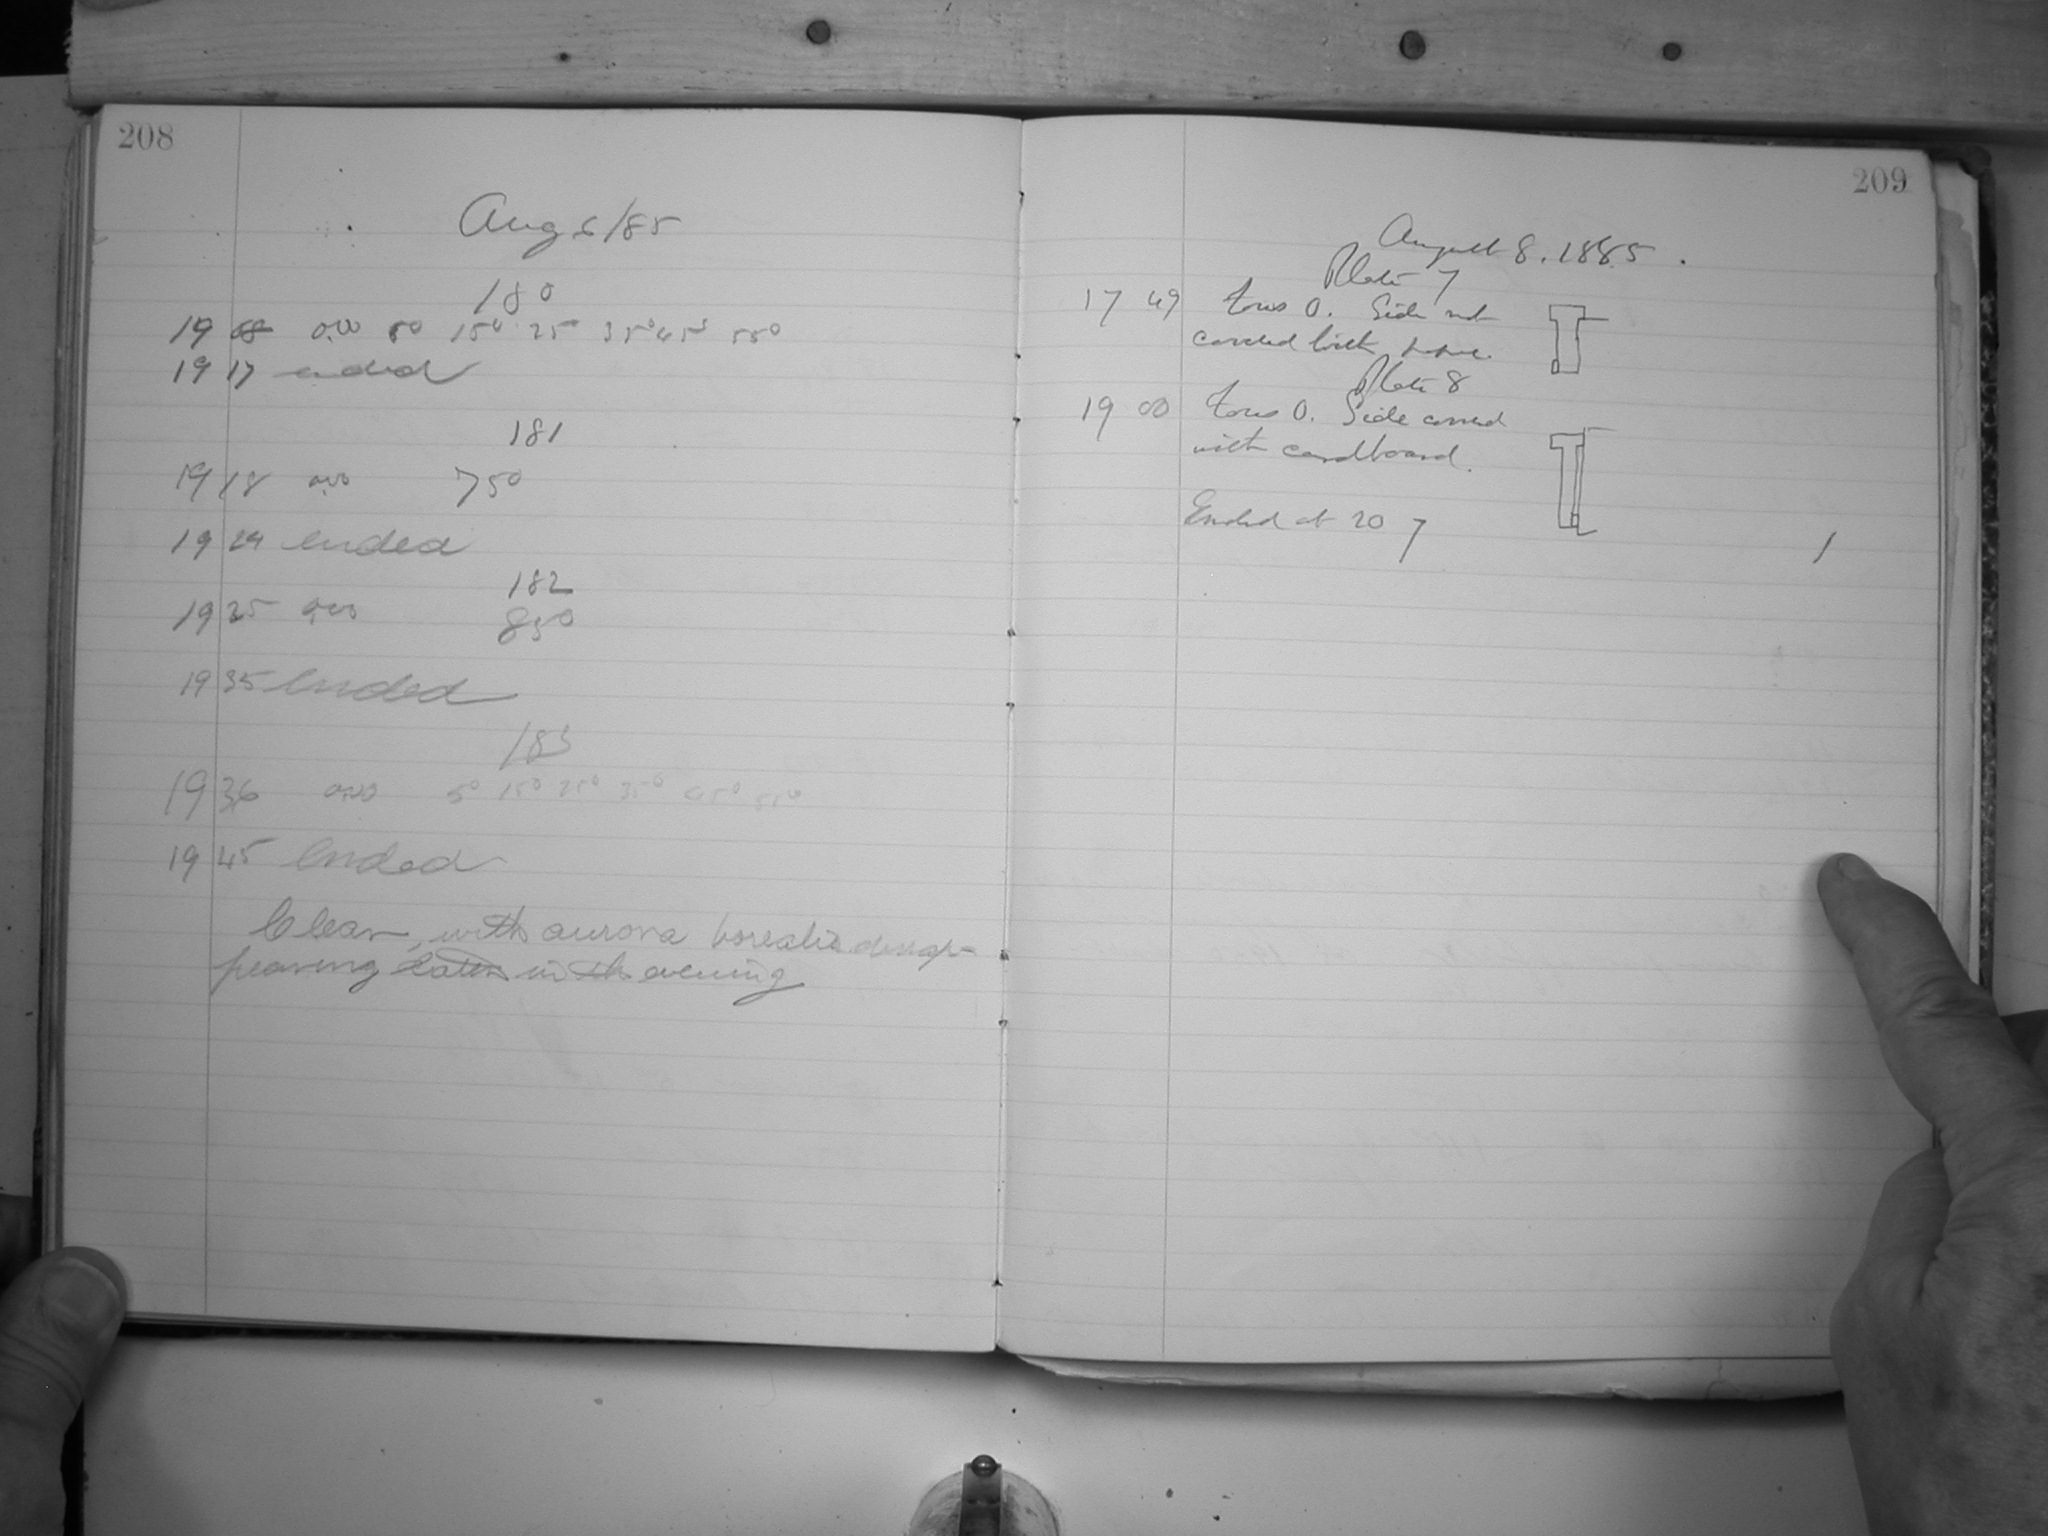 208
Aug 6/85
180
19 08 0.00 5° 15° 25° 35° 45° 55°
19 17 ended
181
19 18 0.00 75°
19 24 ended
182
19 25 0.00 85°
19 35 ended
183
19 36 0.00 5° 15° 25° 35° 45° 55°
19 45 ended
Clear, with aurora borealis disap-
pearing later in the evening
209
August 8. 1885.
Plate 7
17 49 Focus 0. Side not
covered with
Plate 8
19 00 Focus 0. Side covered
with cardboard.
Ended at 20 7